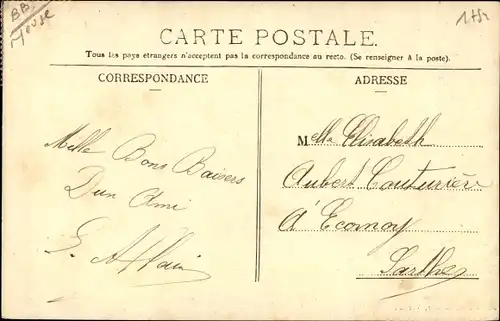 BB
Meuse
CARTE POSTALE.
Tous les pays étrangers n'acceptent pas la correspondance au recto. (Se renseigner à la poste).
CORRESPONDANCE
ADRESSE
Mille Bons Baisers
Dun Ami
Melle Elisabeth
Aubert Couturière
à Ecomoy
Sarthe